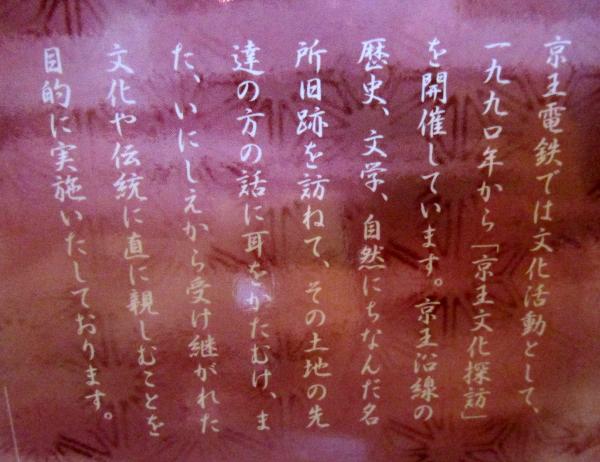 京王電鉄では文化活動として、
一九九〇年から「京王文化探訪」
を開催しています。京王沿線の
歴史、文学、自然にちなんだ名
所旧跡を訪ねて、その土地の先
達の方の話に耳をかたむけ、ま
た、いにしえから受け継がれた
文化や伝統に直に親しむことを
目的に実施いたしております。